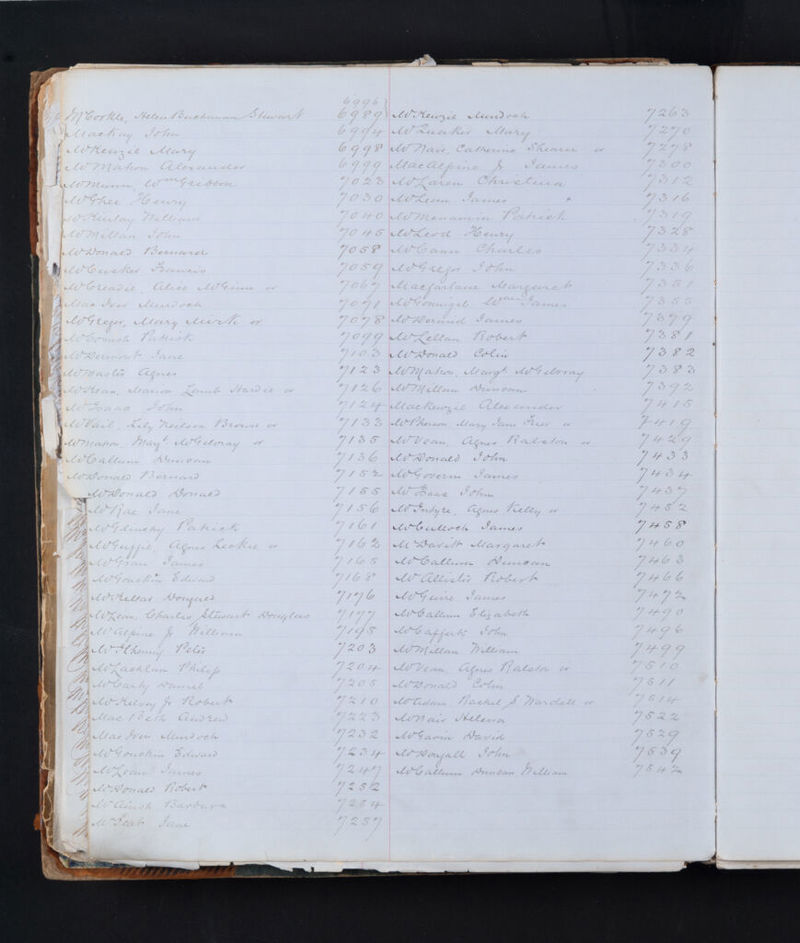 6996
McCorkle, Helen Buchanan Stewart 6989
Mackay John 6994
McKenzie Mary 6998
McMahon Alexander 6999
McMunn, Wm Gibson 7023
McGhee Henry 7030
McKinlay William 7040
McMillan John 7045
McDonald Bernard 7058
McCusker Francis 7059
McCreadie, Alice McGinn or 7067
MacIver Murdoch 7071
McGregor, Mary or 7078
Patrick 7099
McDermott Jane 7103
McMaster Agnes 7123
McLean, Marion Lamb Hardie or 7126
McIsaac John 7124
McPhail, Lily Neilson Brown or 7133
McMahon, Margt McGilvray or 7135
McCallum Duncan 7136
McDonald Bernard 7152
McDonald Donald 7155
McRae Jane 7156
McGlinchy Patrick 7161
McGuffie, Agnes Leckie or 7162
James 7165
McGouckin Edward 7168
McKellar Dougald 7176
McLean, Charles Stewart Douglas 7177
McAlpine Jr William 7195
McIlhenny Peter 7203
McLachlan Philip 7204
McCarty Daniel 7205
McKelvey Jr Robert 7210
MacBeth Andrew 7223
MacIver Murdoch 7232
McGouckin Edward 7234
McLean James 7247
McDonald Robert 7252
McAinsh Barbara 7254
Jane 7257
McKenzie Murdoch 7263
Mary 7270
McNair, Catherine Shearer or 7278
MacAlpine Jr James 7300
McLaren Christina 7312
McLean James 7316
McMenamin Patrick 7319
McLeod Henry 7328
McCann Charles 7334
McGregor John 7336
Macfarlane Margaret 7351
McGonnigal Wm James 7355
McDermid James 7379
McLellan Robert 7381
McDonald Colin 7382
McMahon, Margt McGilvray 7383
McMillan Duncan 7392
Mackenzie Alexander 7415
McPherson, Mary Jane or 7419
McVean, Agnes Ralston or 7429
McDonald John 7433
McGovern James 7434
John 7437
McIntyre, Agnes Kelly or 7452
McCulloch James 7458
McDavitt Margaret 7460
McCallum Duncan 7463
McAllister Robert 7466
McGuire James 7472
McCallum Elizabeth 7490
McCafferty John 7496
McMillan William 7499
McVean, Agnes Ralston or 7510
McDonald Colin 7511
McAdam, Rachel S Wardell or 7514
McNair Helena 7522
McGavin David 7529
McDougall John 7539
McCallum Duncan William 7542